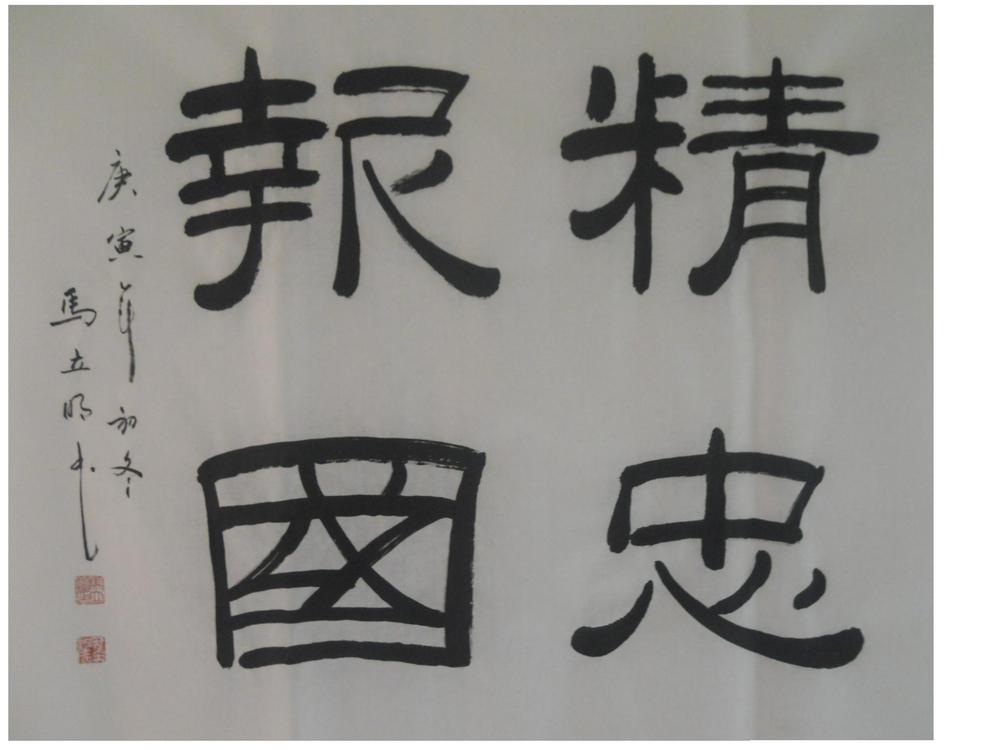 精忠
報國
庚寅年初冬
馬立明书